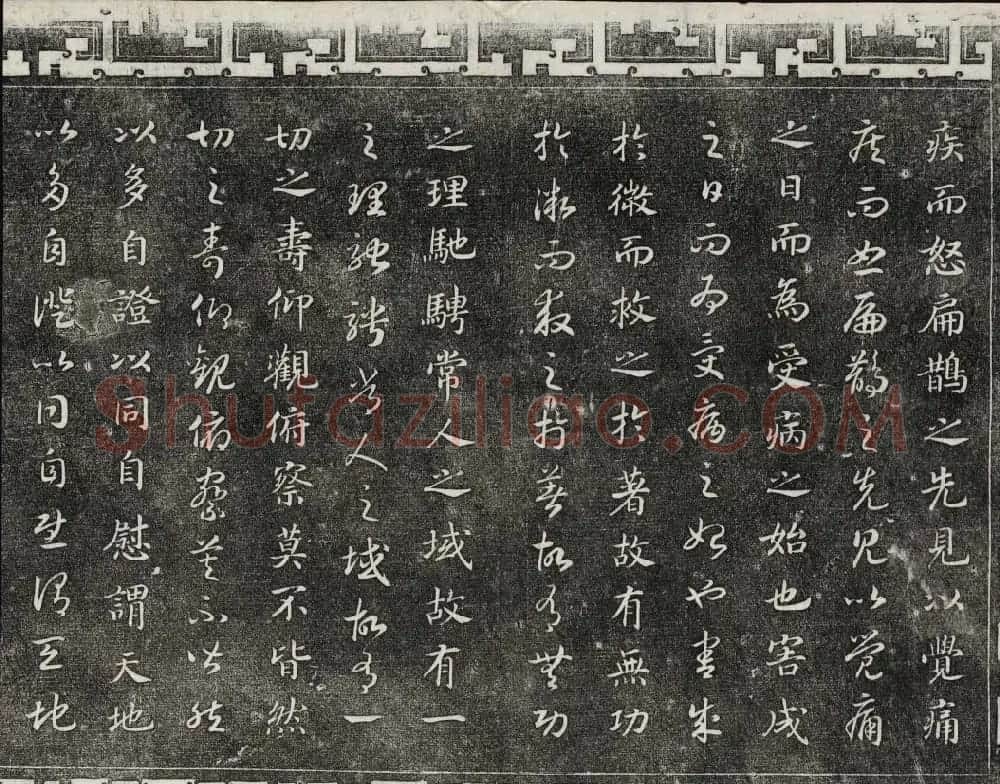 疾而怒扁鵲之先見以覺痛
疾而怒扁鵲之先見以覺痛
之日而為受病之始也害成
之日而為受病之始也害成
於微而救之於著故有無功
於微而救之於著故有無功
之理馳騁常人之域故有一
之理馳騁常人之域故有一
切之壽仰觀俯察莫不皆然
切之壽仰觀俯察莫不皆然
以多自證以同自慰謂天地
以多自證以同自慰謂天地
Shufaziliao.COM